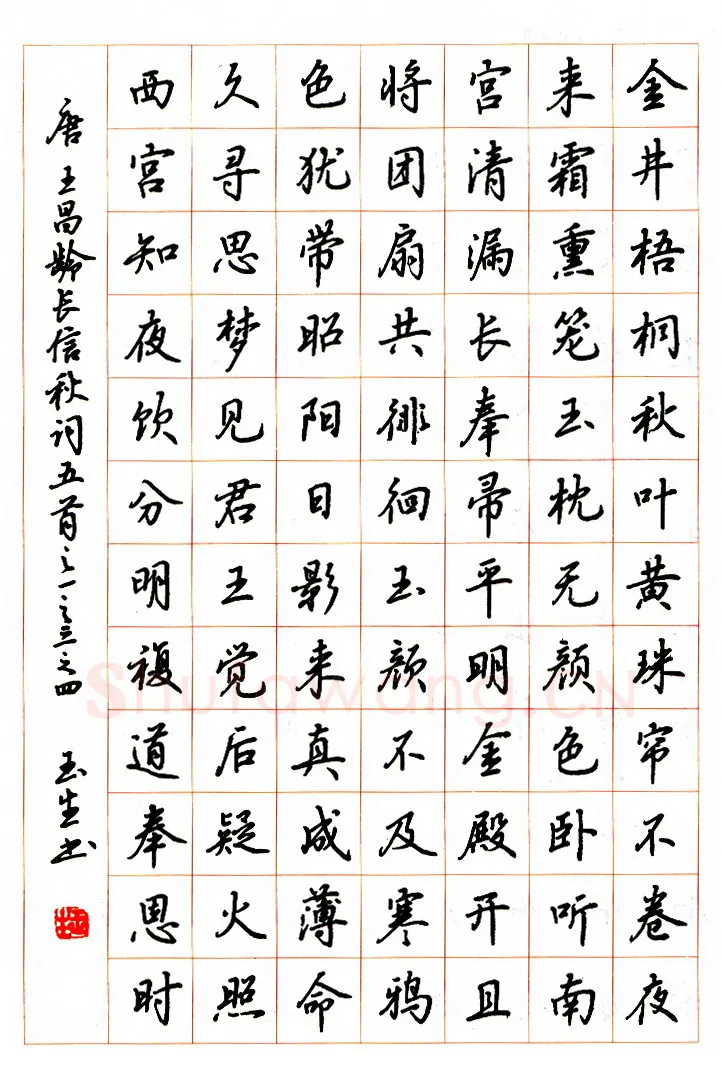 金井梧桐秋叶黄珠帘不卷夜
来霜熏笼玉枕无颜色卧听南
宫清漏长奉帚平明金殿开且
将团扇共徘徊玉颜不及寒鸦
色犹带昭阳日影来真成薄命
久寻思梦见君王觉后疑火照
西宫知夜饮分明複道奉恩时
唐王昌龄长信秋词五首之一之三之四 玉生书
Shufawang.CN